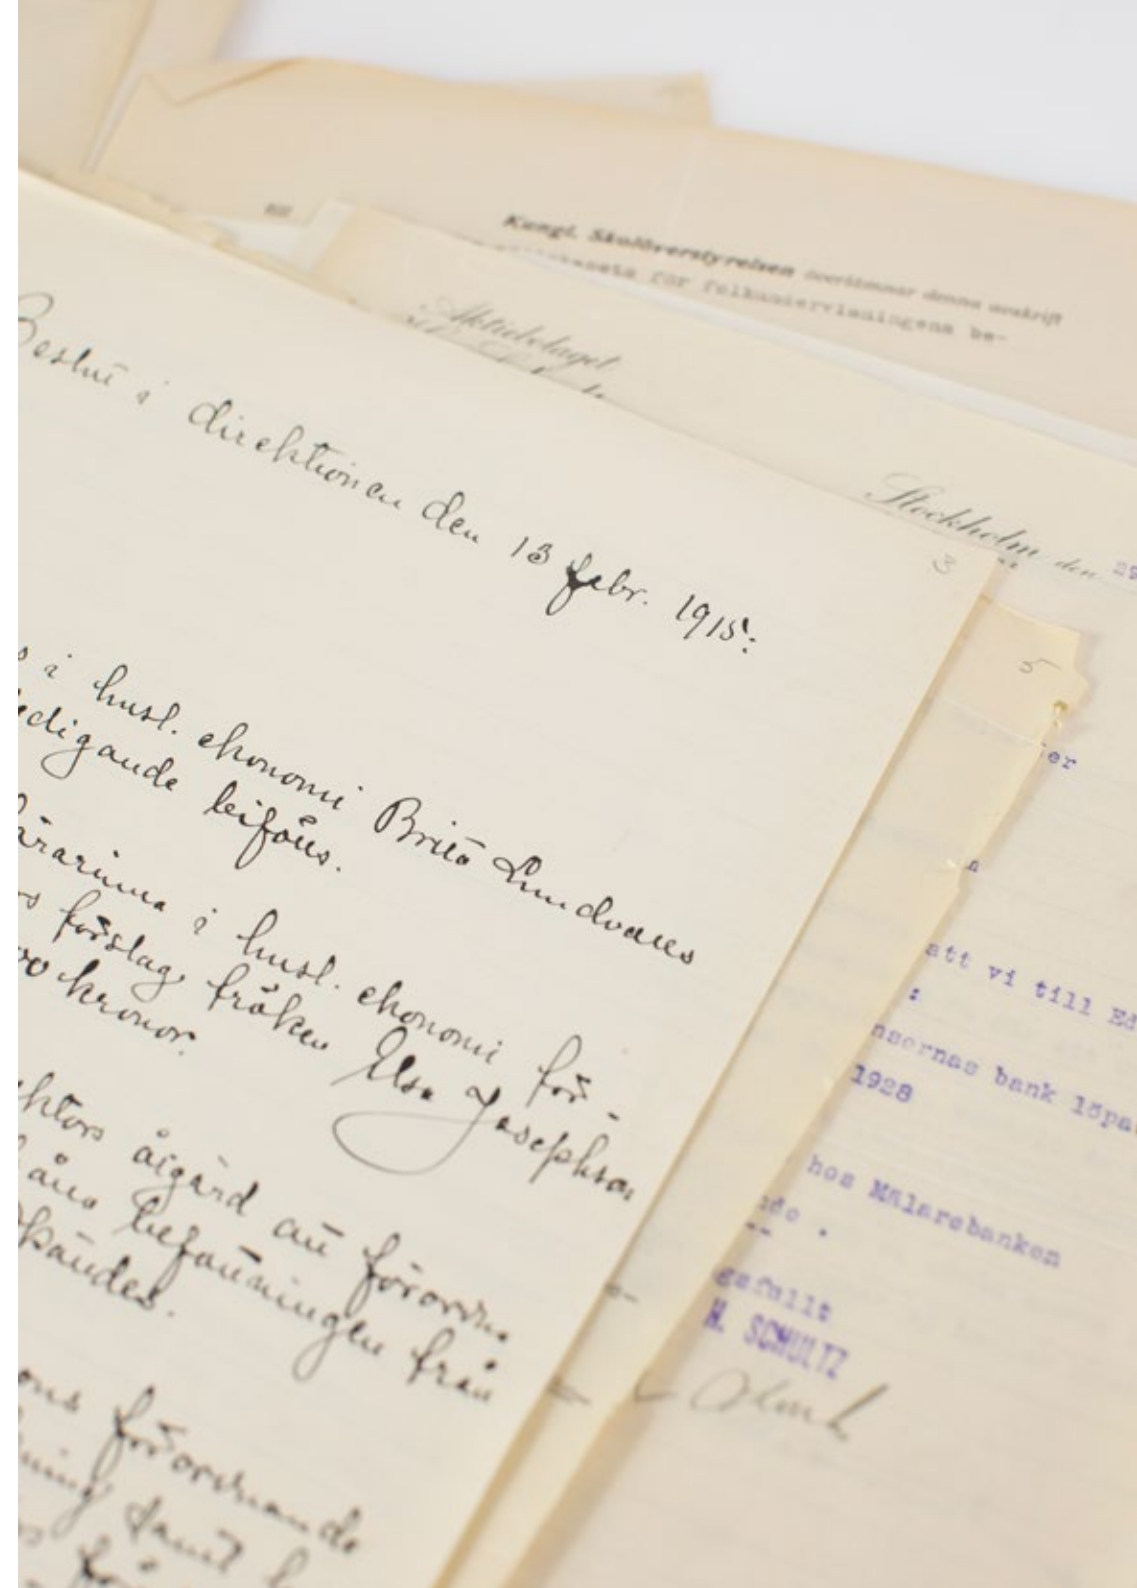 Kungl. Skolöverstyrelsen översämnar denna avskrift
för folkundervisningens be-
Aktiebolaget
Stockholm den 29
3
Beslut i direktionen den 13 febr. 1915:
i husl. ekonomi Brita Lundvalls
edigande bifölls.
ärarinna i husl. ekonomi för-
s förslag fröken Elsa Josephson
00 kronor.
ektors åtgärd att förordn.
befattningen från
kändes.
ons förordnande
ning samt
5
er
att vi till Ed
:
nsernas bank löpa
1928
hos Mälarebanken
gefullt
H. SCHULTZ